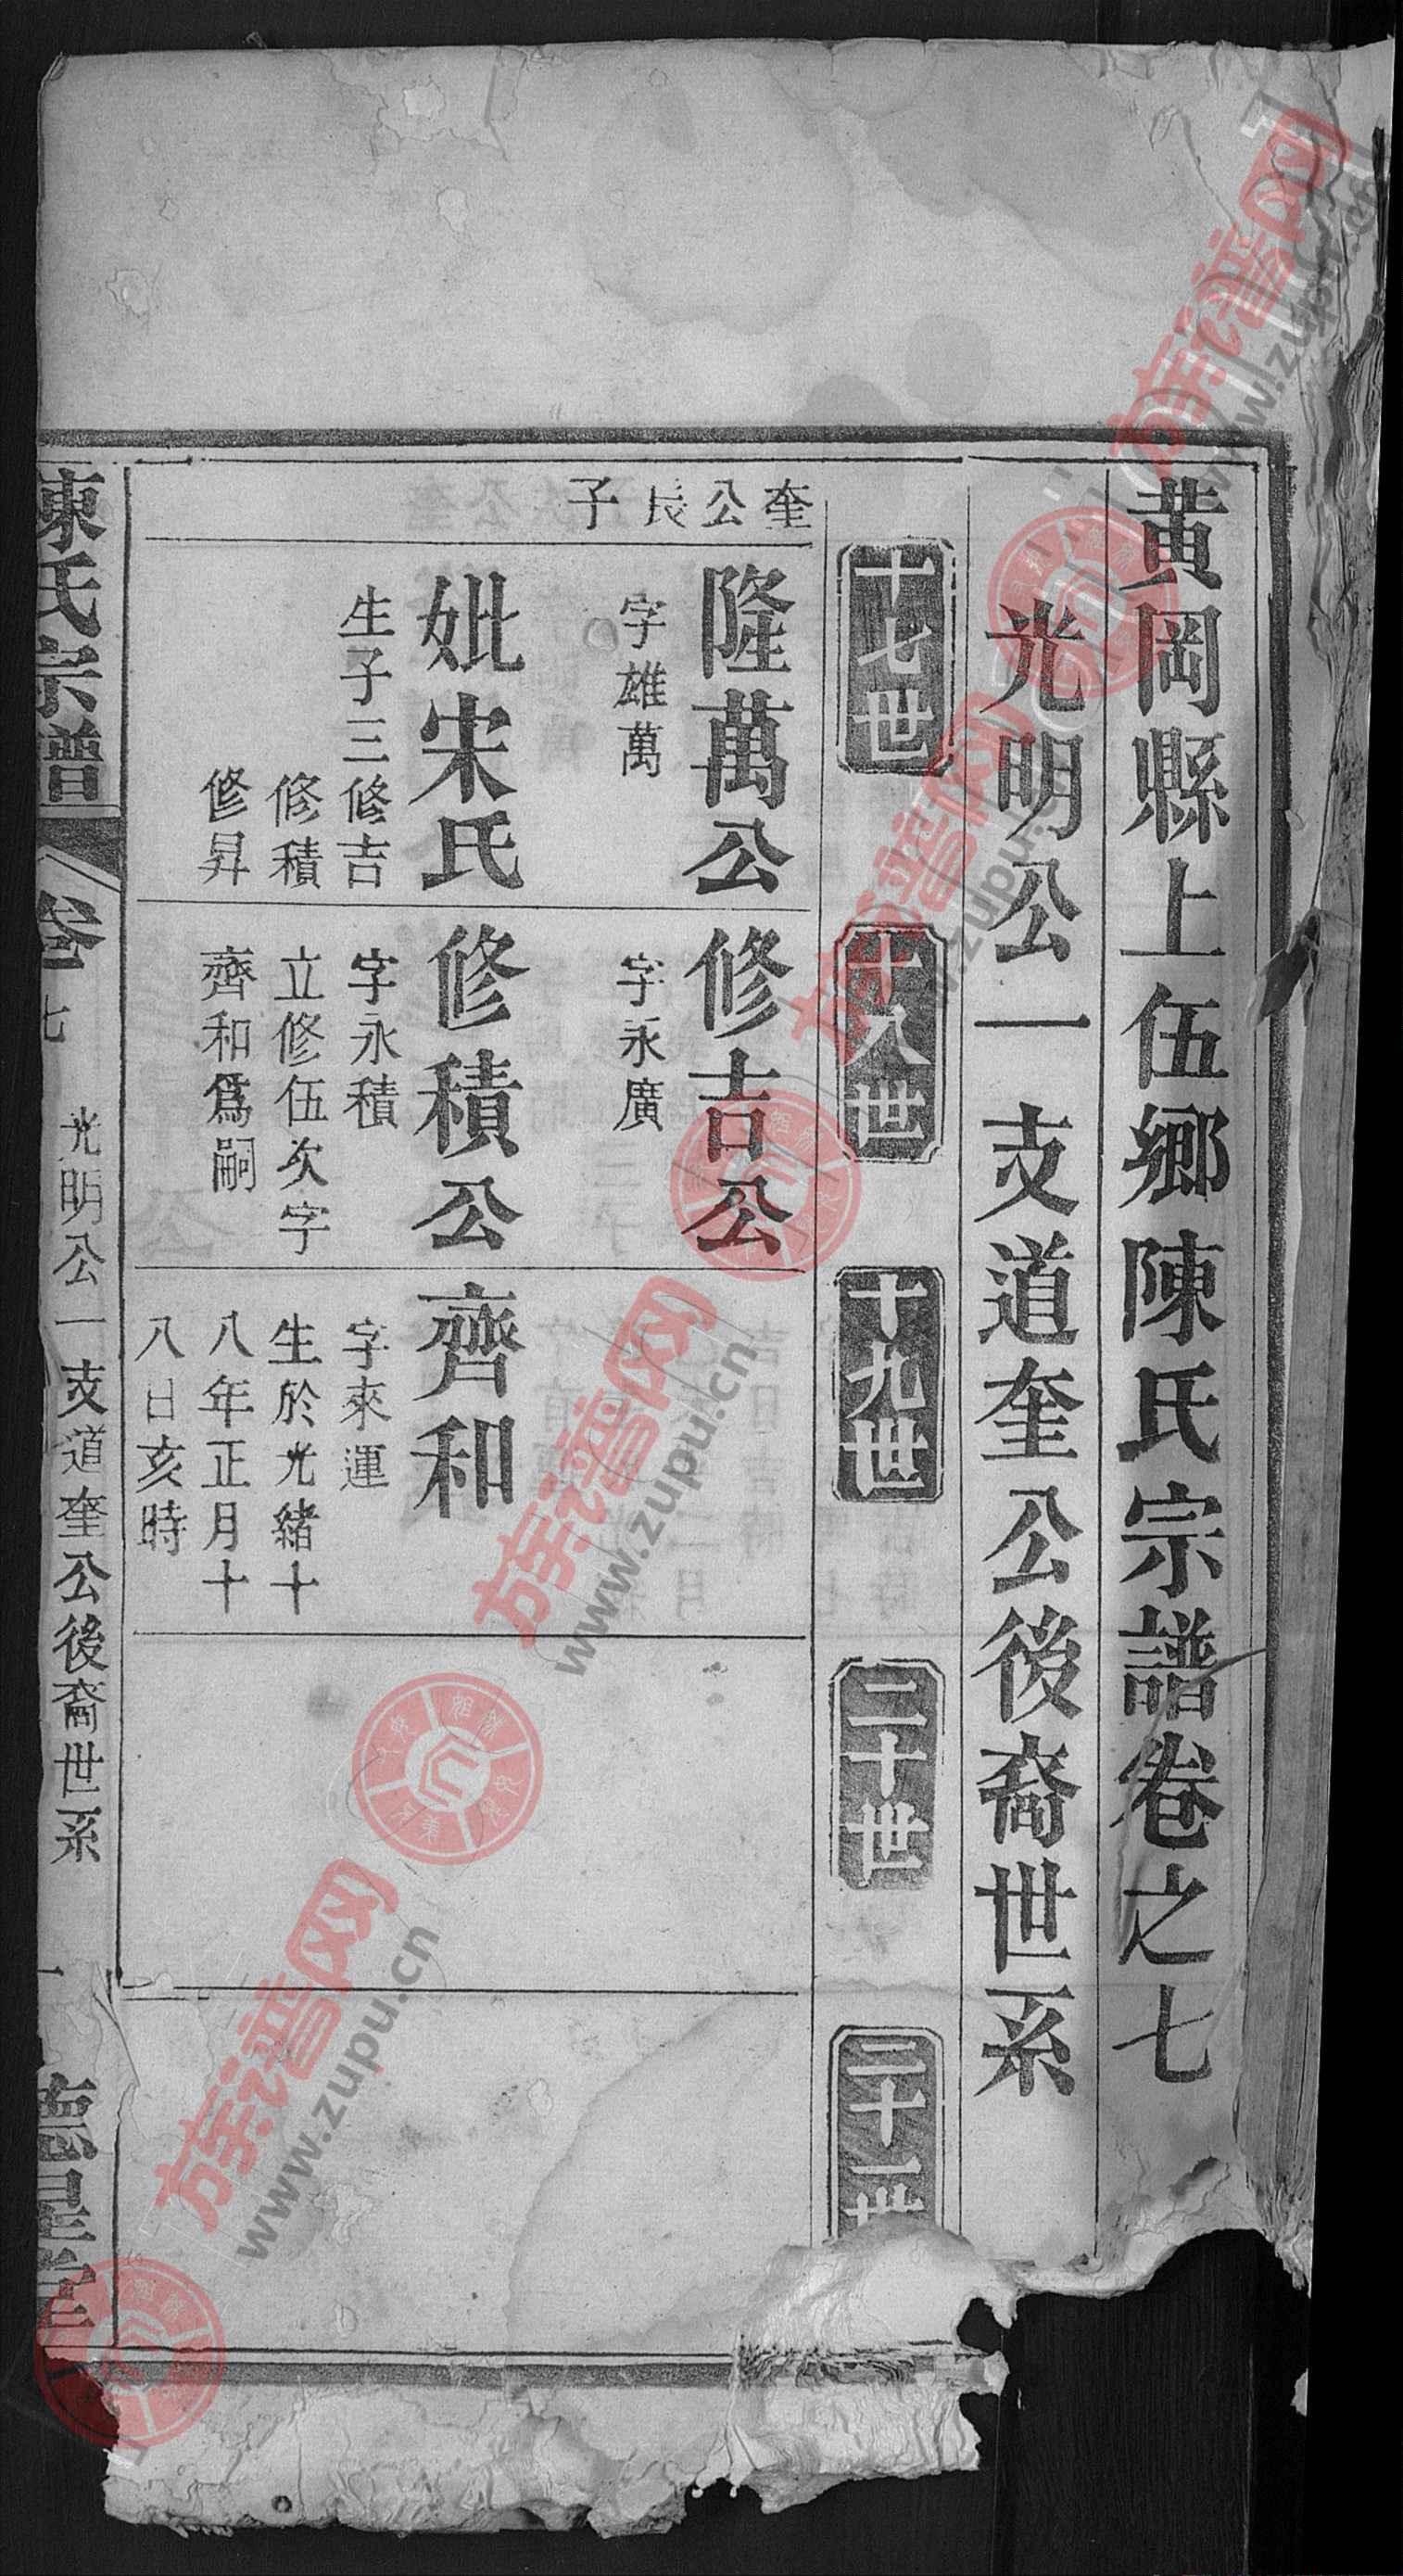 黃岡縣上伍鄉陳氏宗譜卷之七
光明公一支道奎公後裔世系
十七世
十八世
十九世
二十世
二十一世
奎公長子
隆萬公
字雄萬
妣宋氏
生子三修吉
修積
修昇
修吉公
字永廣
修積公
字永積
立修伍次字
齊和爲嗣
齊和
字來運
生於光緒十
八年正月十
八日亥時
陳氏宗譜
卷七
光明公一支道奎公後裔世系
一
德星堂
族谱网
www.zupu.cn
族谱网
www.zupu.cn
族谱网
www.zupu.cn
族谱网
www.zupu.cn